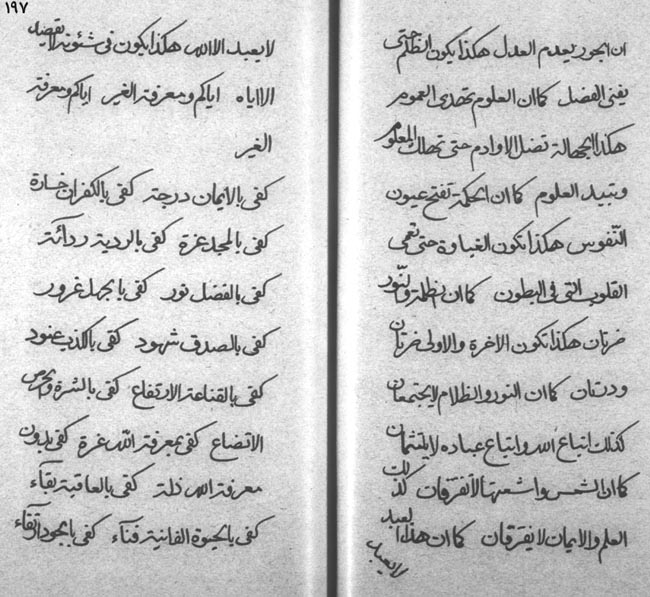 ان الجور يعدم العدل هكذا يكون الظلم حتى
يفنى الفضل كما ان العلوم تهدى العموم
هكذا الجهالة تضل الاوادم حتى تهلك المعلوم
وتبيد العلوم كما ان الحكمة تفتح عيون
النّفوس هكذا تكون الغباوة حتى تعمى
القلوب التى فى البطون كما ان الظلمة والنّور
ضرتان هكذا تكون الاخرة والاولى ضرتان
ودرتان كما ان النور والظلام لايجتمعان
كذلك اتباع الله واتباع عباده لايلتئمان
كما ان الشمس واشعتها لاتفرقان كذلك
العلم والايمان لايفرقان كما ان هذا العبد
لايعبد
١٩٧
لايعبد الا الله هكذا يكون فى شئونه لايقصد
الا اياه اياكم ومعرفة الغير اياكم ومعرفة
الغير
كفى بالايمان درجة كفى بالكفران خسارة
كفى بالمجد عزة كفى بالردية ردائة
كفى بالفضل نور كفى بالجهل غرور
كفى بالصدق شهود كفى بالكذب عنود
كفى بالقناعة الارتفاع كفى بالشره والحرص
الاتضاع كفى بمعرفة الله عزة كفى بدون
معرفة الله ذلة كفى بالعاقبة بقآء
كفى بالحيوة الفانية فنآء كفى بالجود ارتقاء